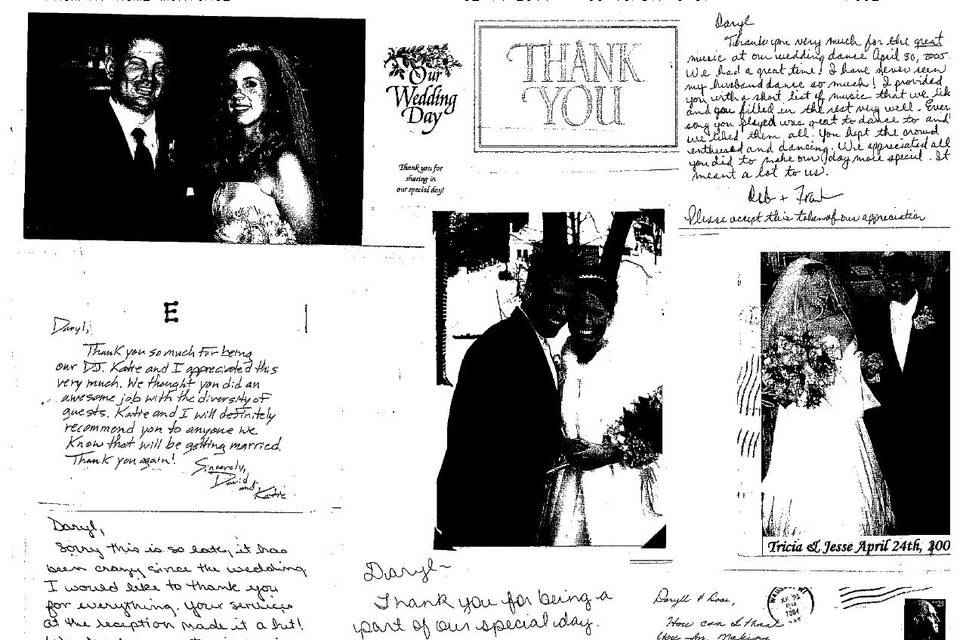 Our
Wedding
Day
Thank you for
sharing in
our special day!
THANK
YOU
Daryl
Thank you very much for the great
music at our wedding dance April 30, 2005.
We had a great time! I have never seen
my husband dance so much! I provided
you with a short list of music that we like
and you filled in the rest very well. Every
song you played was great to dance to and
we liked them all. You kept the crowd
enthused and dancing. We appreciated all
you did to make our day more special. It
meant a lot to us.
Deb + Frank
Please accept this token of our appreciation
E
Daryl,
Thank you so much for being
our DJ. Katie and I appreciated this
very much. We thought you did an
awesome job with the diversity of
guests. Katie and I will definitely
recommend you to anyone we
know that will be getting married.
Thank you again!
Sincerely,
David
and
Katie
Tricia & Jesse April 24th, 200
Daryl,
Sorry this is so late, it has
been crazy since the wedding
I would like to thank you
for everything. Your services
at the reception made it a hit!
Daryl~
Thank you for being a
part of our special day.
Daryll & Rose,
How can I thank
you for making